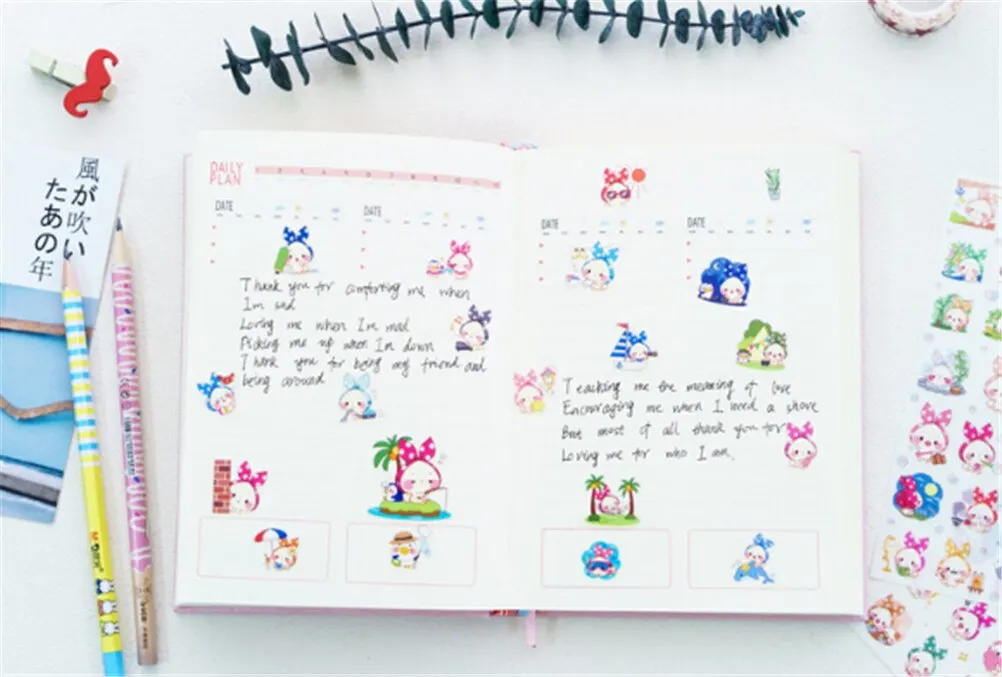 風が吹い
たあの年
DAILY
PLAN
DATE
DATE
Thank you for comforting me when
I'm sad
Loving me when I'm mad
Picking me up when I'm down
Thank you for being my friend and
being around
DATE
DATE
Teaching me the meaning of love
Encouraging me when I need a shove
But most of all thank you for
Loving me for who I am.